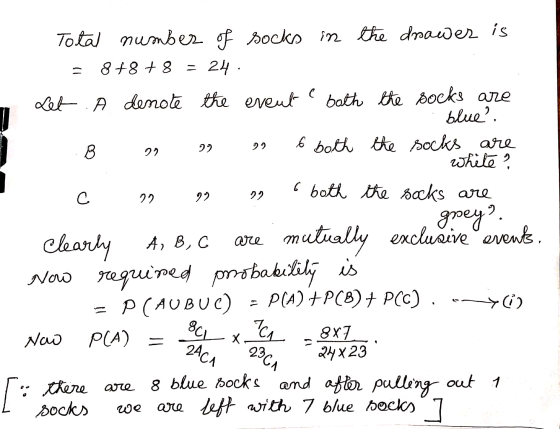 Total number of socks in the drawer is
= 8+8+8 = 24.
Let A denote the event ' both the socks are blue'.
B " " " ' both the socks are white'.
C " " " ' both the socks are grey'.
Clearly A, B, C are mutually exclusive events.
Now required probability is
= P(AUBUC) = P(A)+P(B)+P(C). → (i)
Now P(A) = 8C1/24C1 × 7C1/23C1 = 8×7/24×23.
[∵ there are 8 blue socks and after pulling out 1
socks we are left with 7 blue socks]